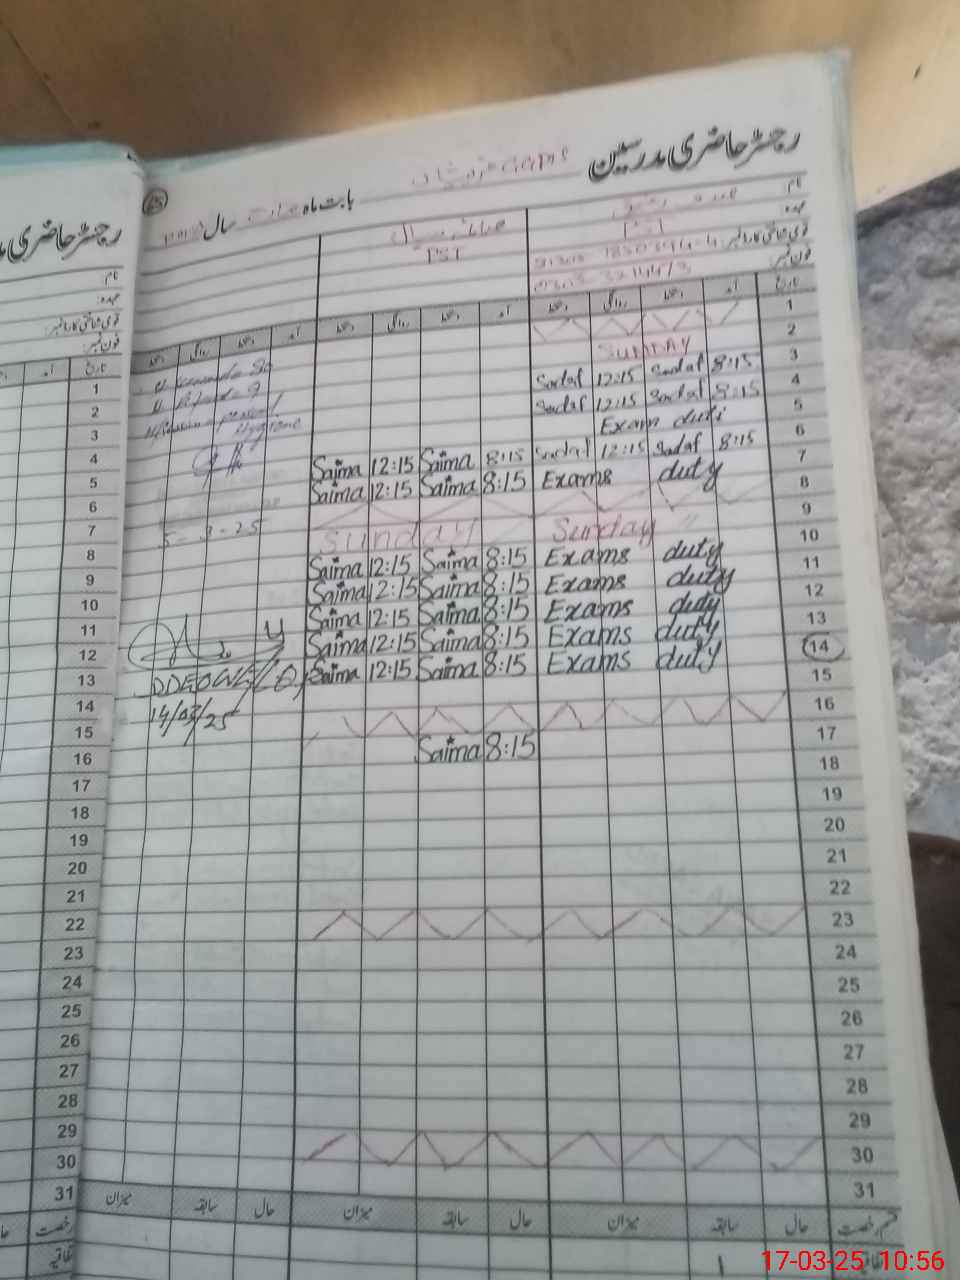 رجسٹر حاضری مدرسین
GGPS
بابت ماہ
سال
نام
عہدہ
PST
PST
قومی شناختی کارڈ نمبر
فون نمبر
تاریخ آمد دستخط روانگی دستخط آمد دستخط روانگی دستخط آمد دستخط روانگی دستخط
1
2 SUNDAY
3 Sadaf 12:15 Sadaf 8:15
4 Sadaf 12:15 Sadaf 8:15
5 Exam duti
6 Saima 12:15 Saima 8:15 Sadaf 12:15 Sadaf 8:15
7 Saima 12:15 Saima 8:15 Exams duty
8
9 Sunday Sunday
10 Saima 12:15 Saima 8:15 Exams duty
11 Saima 12:15 Saima 8:15 Exams duty
12 Saima 12:15 Saima 8:15 Exams duty
13 Saima 12:15 Saima 8:15 Exams duty
14 Saima 12:15 Saima 8:15 Exams duty
15
16
17 Saima 8:15
18
19
20
21
22
23
24
25
26
27
28
29
30
31
Hygiene
5-3-25
14/03/25
حال سابقہ میزان حال سابقہ میزان حال سابقہ میزان
قسم رخصت
اتفاقیہ
رجسٹر حاضری
نام
عہدہ
قومی شناختی کارڈ نمبر
فون نمبر
تاریخ آمد
1
2
3
4
5
6
7
8
9
10
11
12
13
14
15
16
17
18
19
20
21
22
23
24
25
26
27
28
29
30
31
رخصت
اتفاقیہ
17-03-25 10:56